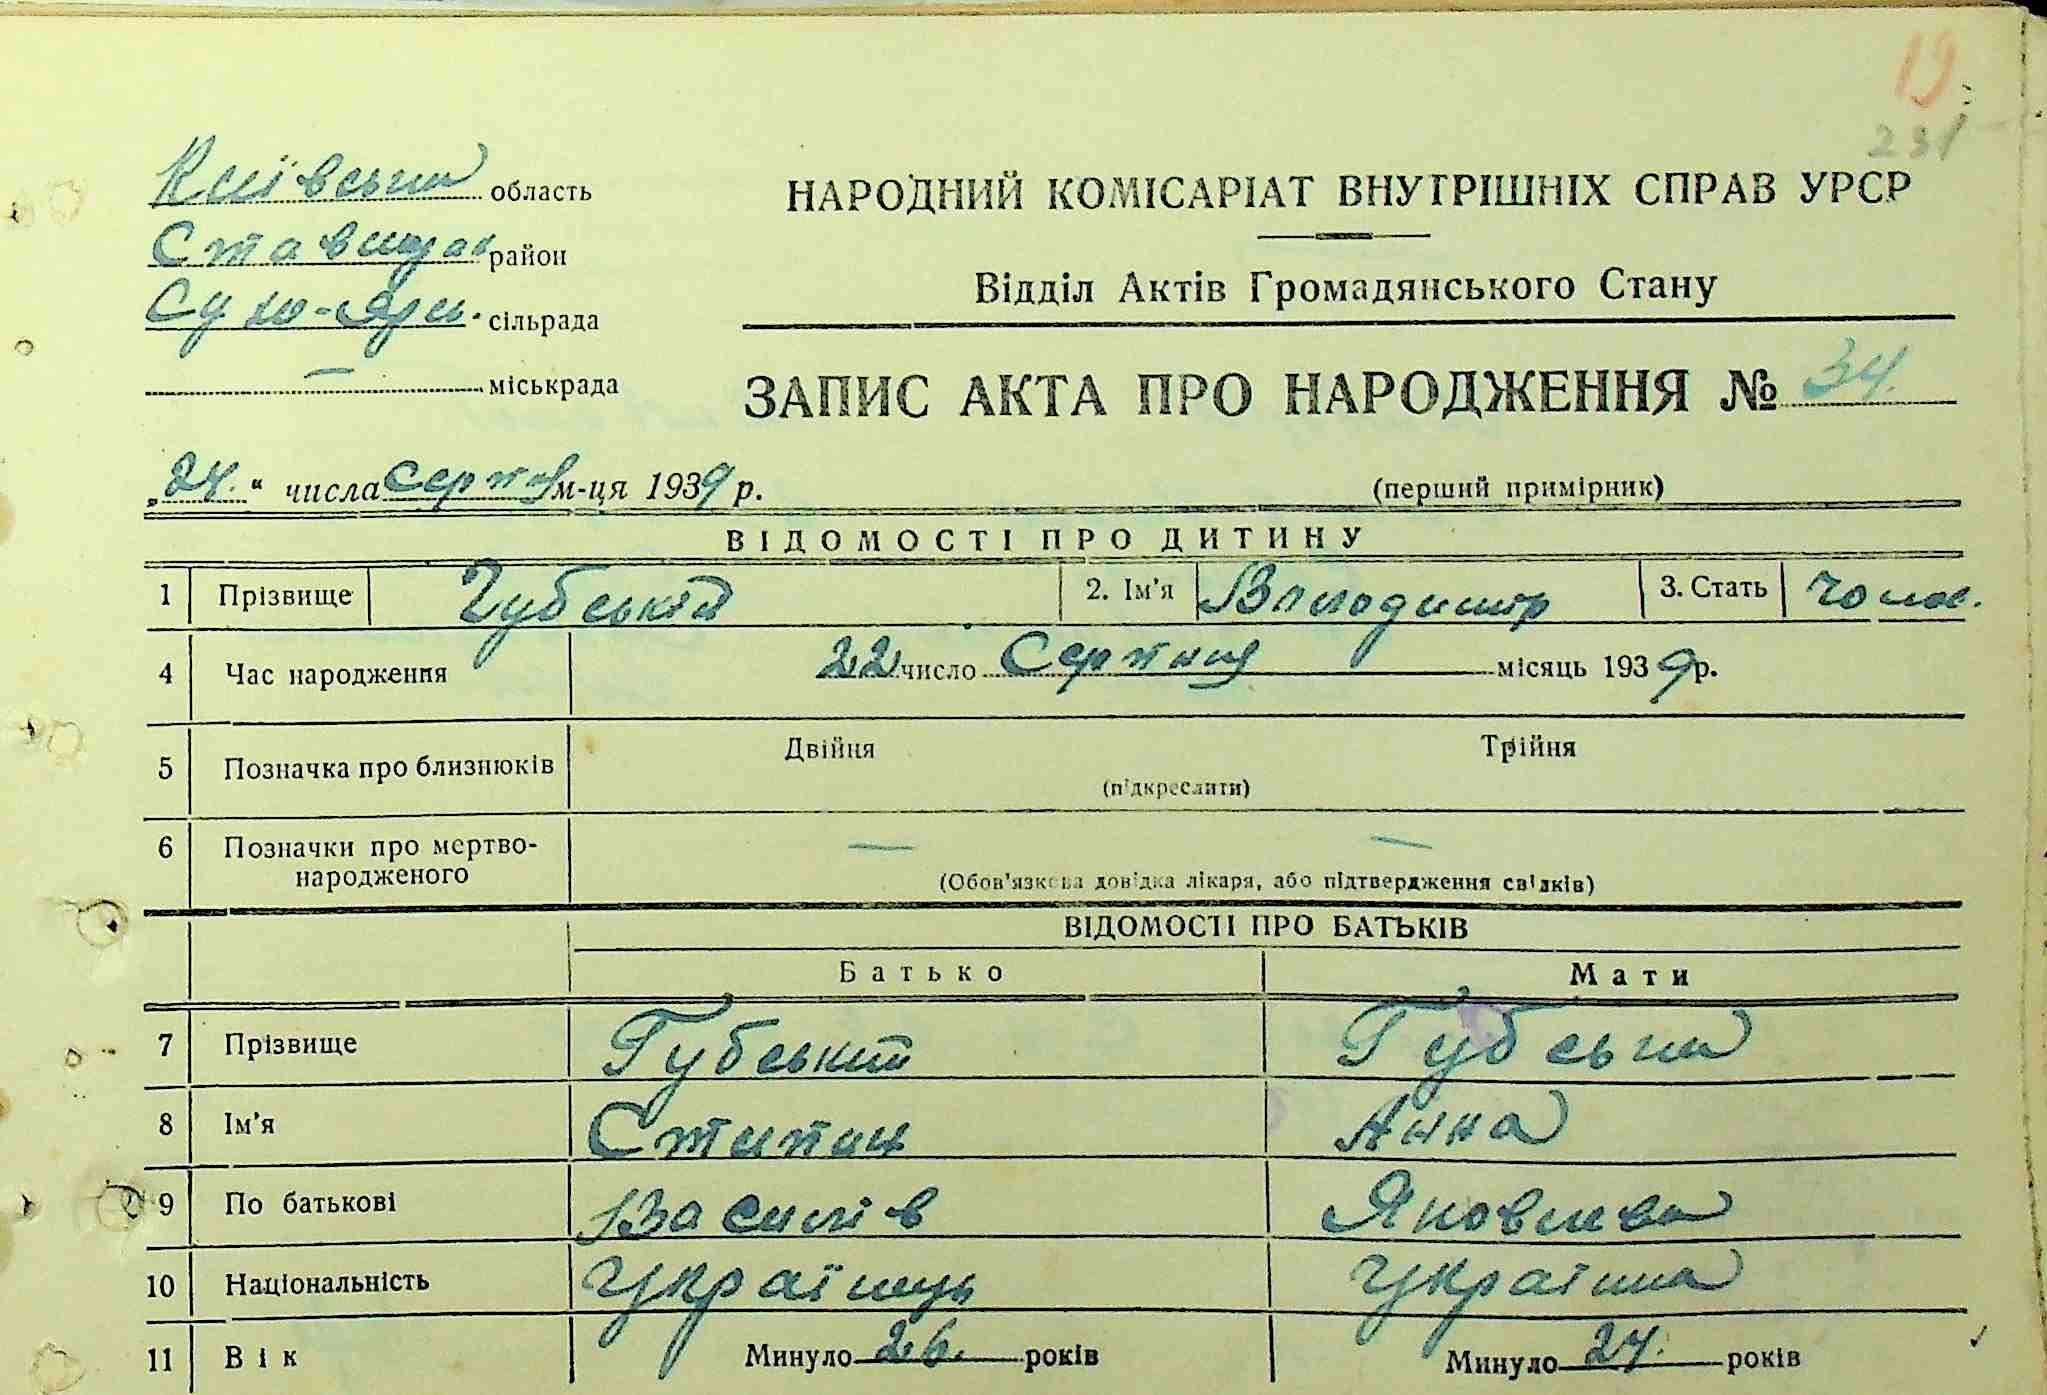 19
231
Київська область
Ставищан район
Сухо-Ярс. сільрада
— міськрада
НАРОДНИЙ КОМІСАРІАТ ВНУТРІШНІХ СПРАВ УРСР
Відділ Актів Громадянського Стану
ЗАПИС АКТА ПРО НАРОДЖЕННЯ № 34.
„24.“ числа Серпня м-ця 1939 р.
(перший примірник)
ВІДОМОСТІ ПРО ДИТИНУ
1 Прізвище Губський 2. Ім'я Володимір 3. Стать чолов.
4 Час народження 22 число Серпня місяць 1939 р.
5 Позначка про близнюків Двійня Трійня
(підкреслити)
6 Позначки про мертво-
народженого — —
(Обов'язкова довідка лікаря, або підтвердження свідків)
ВІДОМОСТІ ПРО БАТЬКІВ
Батько Мати
7 Прізвище Губський Губська
8 Ім'я Степан Анна
9 По батькові Василів Яковлева
10 Національність Українець Українка
11 Вік Минуло 26. років Минуло 24. років